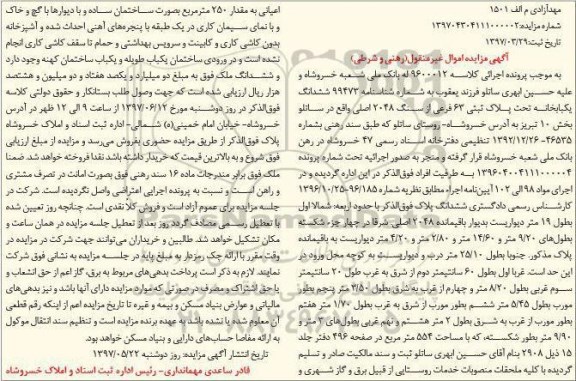 مهدآزادی م الف ۱۵۰۱
شماره مزایده: ۱۳۹۷۰۴۳۰۴۱۱۱۰۰۰۰۰۲
تاریخ ثبت: ۱۳۹۷/۰۳/۲۹
آگهی مزایده اموال غیرمنقول (رهنی و شرطی)
به موجب پرونده اجرائی کلاسه ۹۶۰۰۰۱۲ له بانک ملی شعبه خسروشاه و
علیه حسین ابهری ساتلو فرزند یعقوب به شماره شناسنامه ۹۹۴۷۳ ششدانگ
یکبابخانه تحت پلاک ثبتی ۶۳ فرعی از سنگ ۲۰۴۸ اصلی واقع در ساتلو
بخش ۱۰ تبریز به آدرس خسروشاه- روستای ساتلو که طبق سند رهنی بشماره
۴۶۵۳۵- ۱۳۹۲/۱۲/۲۶ تنظیمی دفترخانه اسناد رسمی ۴۷ خسروشاه در رهن
بانک ملی شعبه خسروشاه قرار گرفته و منجر به صدور اجرائیه تحت شماره پرونده
۱۳۹۶۰۴۰۰۴۱۱۱۰۰۰۰۰۴ به طرفیت افراد فوق‌الذکر در این اداره گردیده و در
اجرای مواد ۹۸ الی ۱۰۲ آیین‌نامه اجراء مطابق نظریه شماره ۹۶/۱۸۵-۱۳۹۶/۱۰/۲۵
کارشناس رسمی دادگستری ششدانگ پلاک فوق‌الذکر با حدود اربعه: شمالا اول
بطول ۱۹ متر دیواریست بدیوار باقیمانده ۲۰۴۸ اصلی. شرقا در چهار جزء شکسته
بطول‌های ۹/۲۰ متر و ۱۴/۶۰ متر و ۲/۸۰ متر و ۴/۲۰ متر دیواریست به باقیمانده
پلاک مذکور. جنوبا بطول ۲۵/۱۰ متر درب و دیواریست به کوچه محل ورود در
این حد است. غربا اول بطول ۶۰ سانتیمتر دوم از شرق به غرب طول ۲۰ سانتیمتر
سوم غربی بطول ۸/۲۰ متر و چهارم از غرب به شرق بطول ۳/۵۰ متر پنجم بطور
مورب بطول ۵/۴۵ متر ششم بطور مورب از شرق به غرب بطول ۱/۷۰ متر هفتم
بطور مورب از غرب به شرق بطول ۲ متر هشتم و نهم غربی بطول‌های ۳ متر و
۹/۹۰ متر بطور شکسته، که با مساحت ۵۵۴ متر مربع در صفحه ۴۹۶ دفتر جلد
۱۵ ذیل ۲۹۰۸ بنام آقای حسین ابهری ساتلو ثبت و سند مالکیت صادر و تسلیم
گردیده با کلیه ملحقات منصوبات خدمات رفاهی از قبیل برق و گاز شهری و
اعیانی به مقدار ۲۵۰ مترمربع بصورت ساختمان ساده و با دیوارها با گچ و خاک
و با نمای سیمان کاری در یک طبقه با پنجره‌های آهنی احداث شده و آشپزخانه
بدون کاشی کاری و کابینت و سرویس بهداشتی و حمام تا سقف کاشی کاری انجام
نشده است و در ورودی ساختمان یکباب طویله و یکباب ساختمان کهنه وجود دارد
و ششدانگ ملک فوق به مبلغ دو میلیارد و یکصد هفتاد و دو میلیون و هشتصد
هزار ریال ارزیابی شده است که جهت وصول طلب بستانکار و حقوق دولتی کلاسه
فوق‌الذکر در روز دوشنبه مورخ ۱۳۹۷/۰۶/۱۲ از ساعت ۹ الی ۱۲ ظهر در آدرس
خسروشاه- خیابان امام خمینی(ه) شمالی- اداره ثبت اسناد و املاک خسروشاه
پلاک فوق‌الذکر از طریق مزایده حضوری بفروش می‌رسد و مزایده از مبلغ ارزیابی
فوق شروع و به بالاترین قیمت که خریدار داشته باشد نقدا فروخته خواهد شد. ضمنا
ملک فوق برابر مندرجات ماده ۱۶ سند رهنی فوق بصورت امانت در تصرف مشتری
و راهن است و نسبت به پرونده اجرایی اعتراضی واصل نگردیده است. شرکت در
جلسه مزایده برای عموم آزاد است و فروش کلاً نقدی است. چنانچه روز تعیین شده
با تعطیل رسمی مصادف گردد روز بعد از تعطیل جلسه مزایده در همان ساعت و
مکان تشکیل خواهد شد. طالبین و خریداران می‌توانند جهت شرکت در مزایده در
وقت مقرر با ارائه چک رمزدار به مبلغ پایه در جلسه مزایده به نشانی فوق شرکت
نمایند. لازم به ذکر است پرداخت بدهی‌های مربوط به برق، گاز اعم از حق انشعاب و
یا حق اشتراک و مصرف در صورتی که مورد مزایده دارای آنها باشد و نیز بدهی‌های
مالیاتی و عوارض بنیاد مسکن و بیمه و غیره تا تاریخ مزایده اعم از اینکه رقم قطعی
آن معلوم شده یا نشده باشد به عهده برنده مزایده است و تنظیم سند انتقال موکول
به ارائه مفاصا حساب‌های دارایی و بنیاد مسکن خواهد بود.
تاریخ انتشار آگهی مزایده: روز دوشنبه ۱۳۹۷/۰۵/۲۲
قادر ساعدی مهمانداری- رئیس اداره ثبت اسناد و املاک خسروشاه